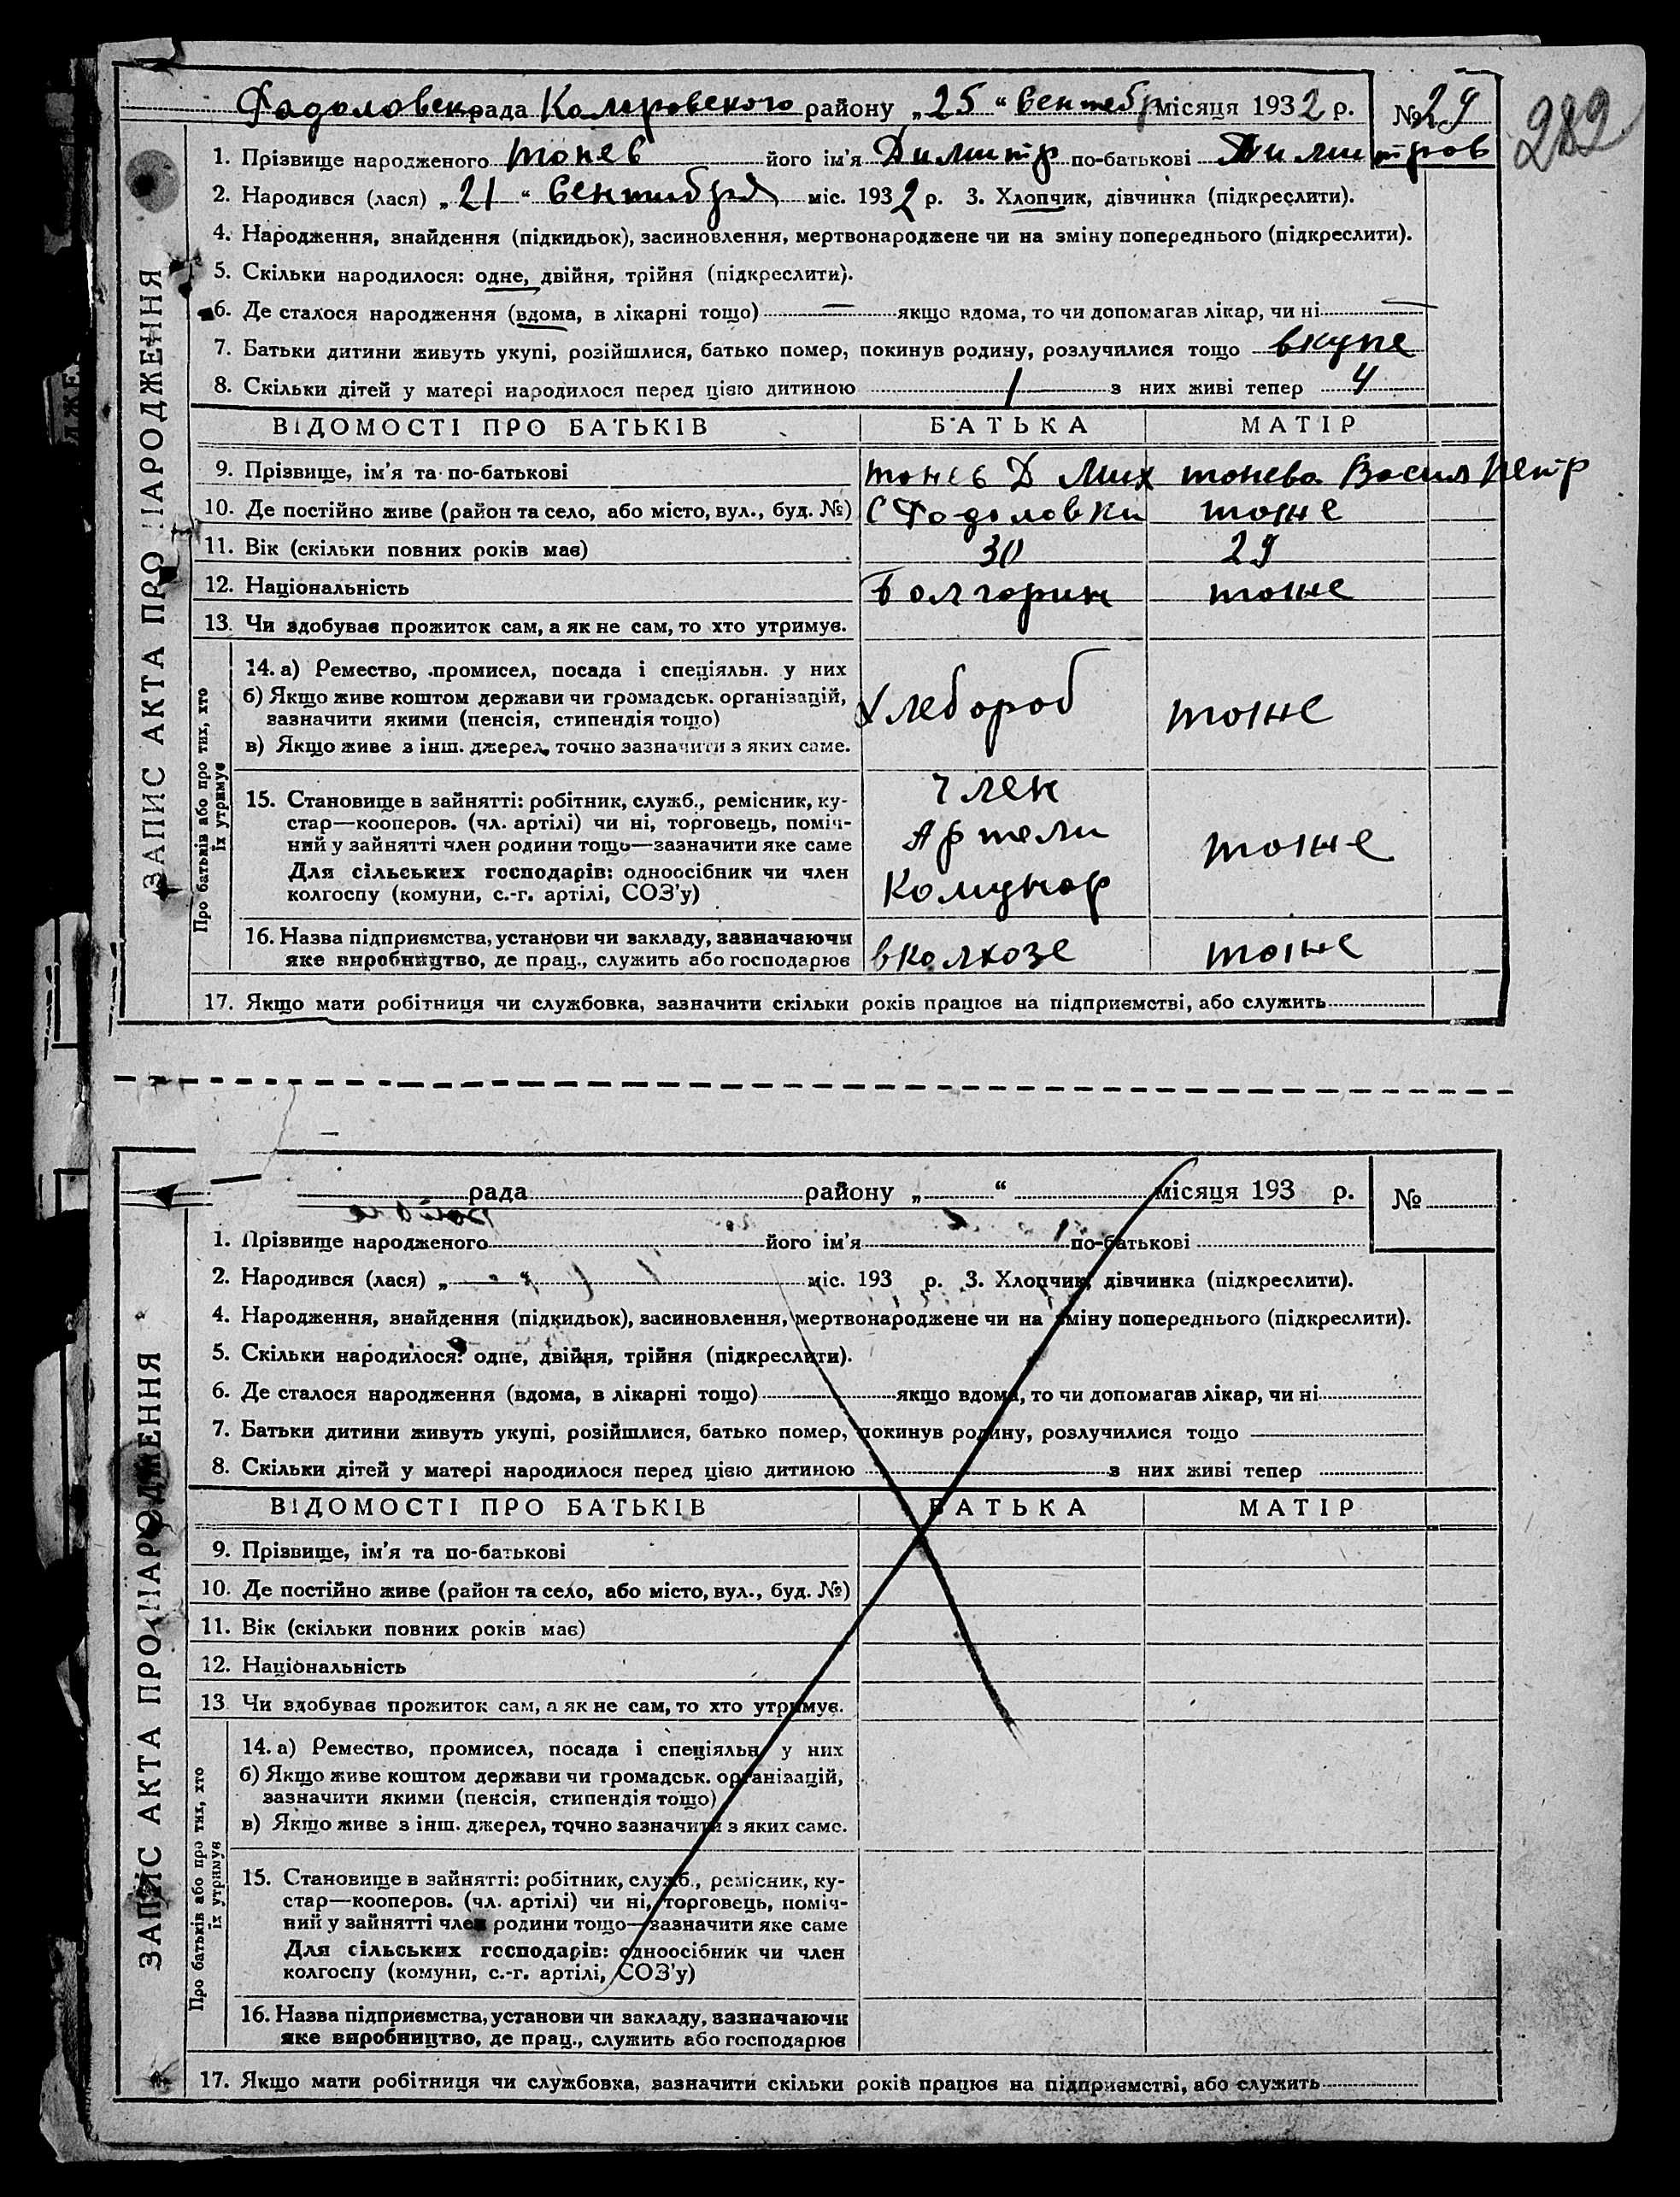 рада Коларовского району „25“ Сентебр місяця 1932 р. № 29
282
1. Прізвище народженого Тонев його ім’я Димитр по-батькові Димитров
2. Народився (лася) „21“ Сентибря міс. 1932 р. 3. Хлопчик, дівчинка (підкреслити).
4. Народження, знайдення (підкидьок), засиновлення, мертвонароджене чи на зміну попереднього (підкреслити).
5. Скільки народилося: одне, двійня, трійня (підкреслити).
6. Де сталося народження (вдома, в лікарні тощо) — якщо вдома, то чи допомагав лікар, чи ні —
7. Батьки дитини живуть укупі, розійшлися, батько помер, покинув родину, розлучилися тощо вкупе
8. Скільки дітей у матері народилося перед цією дитиною 1 з них живі тепер 4
ВІДОМОСТІ ПРО БАТЬКІВ БАТЬКА МАТІР
9. Прізвище, ім’я та по-батькові Тонев Д Мих Тонева Васил Петр
10. Де постійно живе (район та село, або місто, вул., буд. №) С тоже
11. Вік (скільки повних років має) 30 29
12. Національність Болгорин тоже
13. Чи здобуває прожиток сам, а як не сам, то хто утримує.
14. а) Ремество, промисел, посада і спеціяльн. у них
б) Якщо живе коштом держави чи громадськ. організацій,
зазначити якими (пенсія, стипендія тощо) Хлебороб тоже
в) Якщо живе з інш. джерел, точно зазначити з яких саме.
15. Становище в зайнятті: робітник, служб., ремісник, ку- Член
стар—кооперов. (чл. артілі) чи ні, торговець, поміч- Артели
ний у зайнятті член родини тощо—зазначити яке саме тоже
Для сільських господарів: одноосібник чи член
колгоспу (комуни, с.-г. артілі, СОЗ’у) Комунар
16. Назва підприємства, установи чи закладу, зазначаючи
яке виробництво, де прац., служить або господарює вколхозе тоже
17. Якщо мати робітниця чи службовка, зазначити скільки років працює на підприємстві, або служить
ЗАПИС АКТА ПРО НАРОДЖЕННЯ
Про батьків або про тих, хто
їх утримує
рада району „ “ місяця 193 р. №
1. Прізвище народженого його ім’я по-батькові
2. Народився (лася) „ “ міс. 193 р. 3. Хлопчик, дівчинка (підкреслити).
4. Народження, знайдення (підкидьок), засиновлення, мертвонароджене чи на зміну попереднього (підкреслити).
5. Скільки народилося: одне, двійня, трійня (підкреслити).
6. Де сталося народження (вдома, в лікарні тощо) якщо вдома, то чи допомагав лікар, чи ні
7. Батьки дитини живуть укупі, розійшлися, батько помер, покинув родину, розлучилися тощо
8. Скільки дітей у матері народилося перед цією дитиною з них живі тепер
ВІДОМОСТІ ПРО БАТЬКІВ БАТЬКА МАТІР
9. Прізвище, ім’я та по-батькові
10. Де постійно живе (район та село, або місто, вул., буд. №)
11. Вік (скільки повних років має)
12. Національність
13 Чи здобуває прожиток сам, а як не сам, то хто утримує.
14. а) Ремество, промисел, посада і спеціяльн. у них
б) Якщо живе коштом держави чи громадськ. організацій,
зазначити якими (пенсія, стипендія тощо)
в) Якщо живе з інш. джерел, точно зазначити з яких саме.
15. Становище в зайнятті: робітник, служб., ремісник, ку-
стар—кооперов. (чл. артілі) чи ні, торговець, поміч-
ний у зайнятті член родини тощо—зазначити яке саме
Для сільських господарів: одноосібник чи член
колгоспу (комуни, с.-г. артілі, СОЗ’у)
16. Назва підприємства, установи чи закладу, зазначаючи
яке виробництво, де прац., служить або господарює
17. Якщо мати робітниця чи службовка, зазначити скільки років працює на підприємстві, або служить
ЗАПИС АКТА ПРО НАРОДЖЕННЯ
Про батьків або про тих, хто
їх утримує